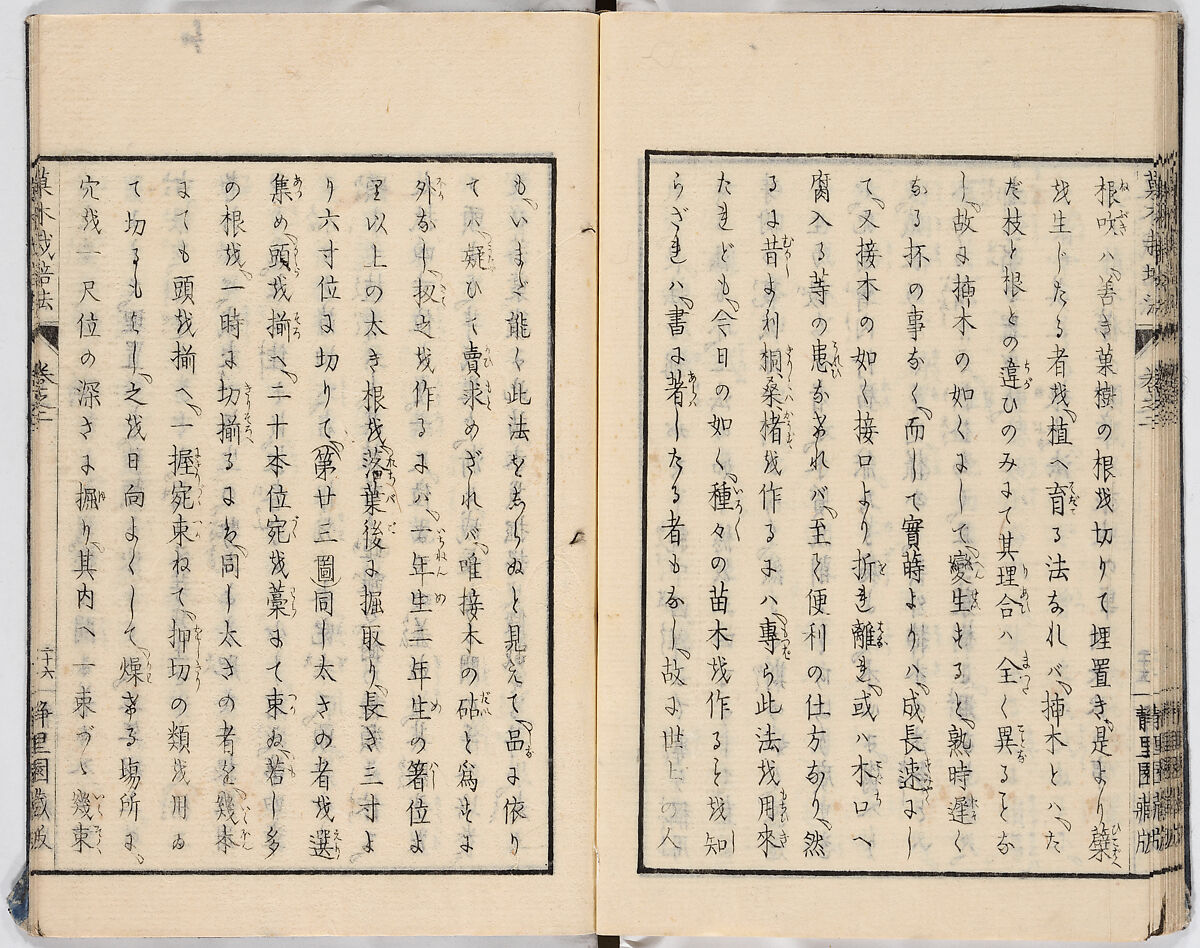 根吹ハ善き菓樹の根越切りて埋置き是より蘖
越生じたる者越植へ育る法なれバ挿木とハた
だ枝と根との違ひのみにて其理合ハ全く異ることな
し故に挿木の如くにして變生もると熟時遲く
なる抔の事なく而して實蒔よりハ成長速にし
て又接木の如く接口より折れ離れ或ハ木口へ
腐入る等の患なけれバ至て便利の仕方なり然
るに昔より桐桑楮越作るにハ專ら此法越用來
たれども今日の如く種々の苗木越作ること越知
らざれハ書に著したる者もなし故に世上の人
もいまだ能く此法をしらぬと見えて品に依り
てハ疑ひて賣求めざれバ唯接木の砧と爲もに
外なし扨之越作るにハ一年生二年生の箸位よ
り以上の太き根越落葉後に掘取り長き三寸よ
り六寸位に切りて第廿三圖同し太さの者越選
集め頭越揃へ二十本位宛越藁にて束ぬ若し多
の根越一時に切揃るにも同し太さの者を幾本
にても頭越揃へ一握宛束ねて押切の類越用ゐ
て切るもよし之越日向よくして燥ける塲所に
穴越一尺位の深さに掘り其内へ一束づゝ幾束
菓木栽培法 卷之二 二十六 靜里園藏版
靜里園藏版